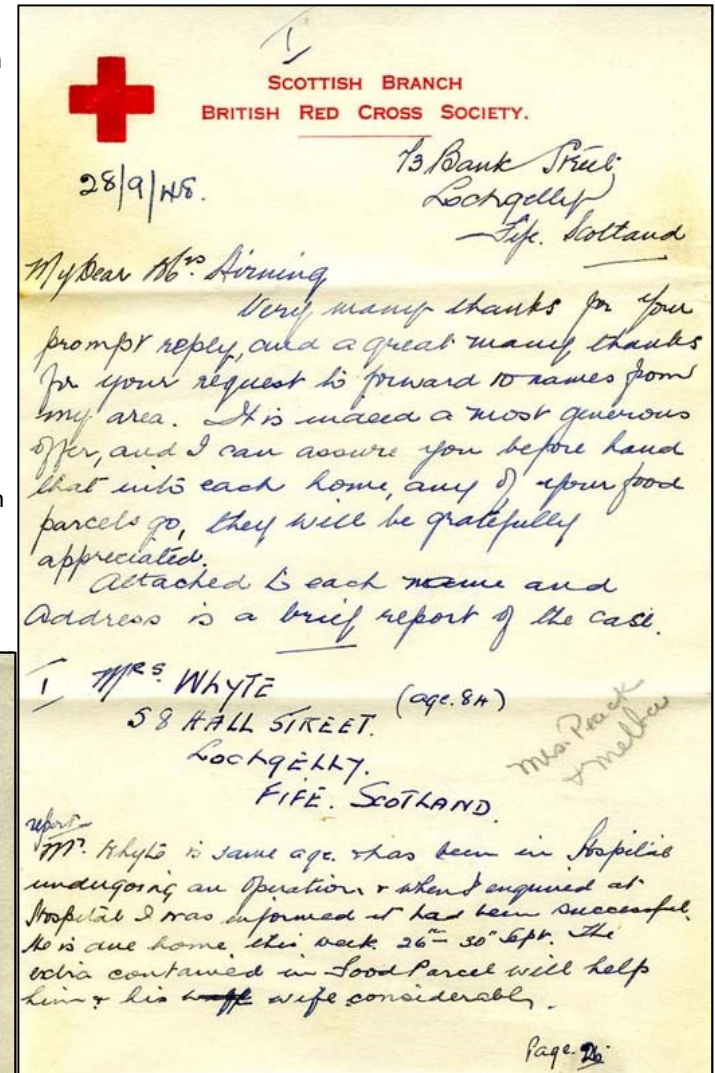 I
SCOTTISH BRANCH
BRITISH RED CROSS SOCIETY.
73 Bank Street,
Lochgelly
Fife. Scotland
28/9/48.
My Dear Mrs
Very many thanks for your
prompt reply, and a great many thanks
for your request to forward 10 names from
my area. It is indeed a most generous
offer, and I can assure you before hand
that into each home, any of your food
parcels go, they will be gratefully
appreciated.
Attached to each name and
Address is a brief report of the case.
I Mrs. WHYTE (age. 84)
58 HALL STREET.
LOCHGELLY.
FIFE. SCOTLAND.
Mrs. Peack
& Melba
report
Mr. Whyte is same age. & has been in Hospital
undergoing an Operation & when I enquired at
Hospital I was informed it had been successful.
He is due home this week. 26th - 30th Sept. The
extra contained in Food Parcel will help
him & his wife considerably.
Page.